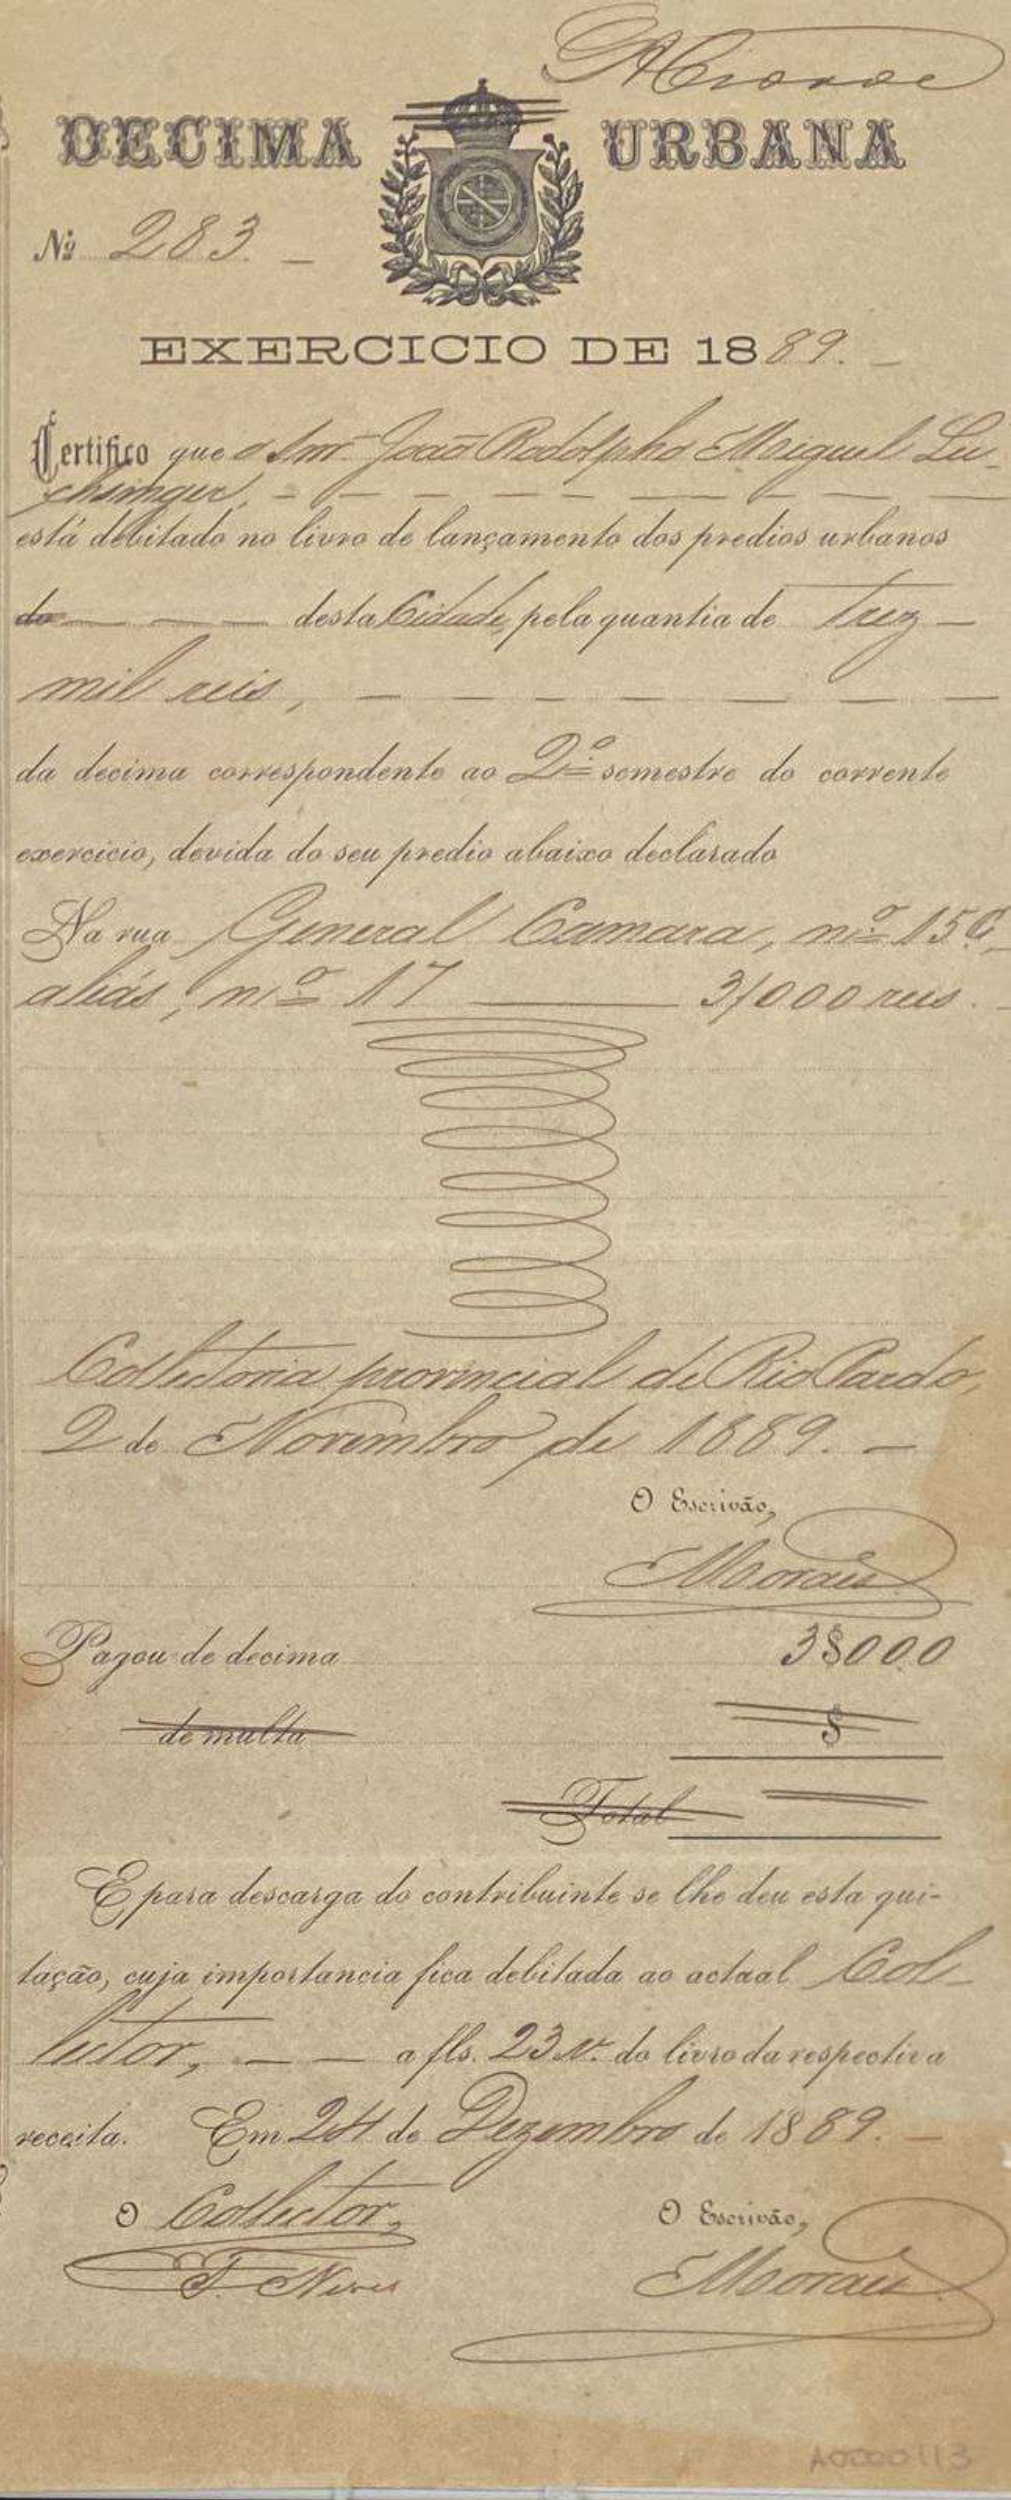 DECIMA URBANA
Nº 283
EXERCICIO DE 1889.
Certifico que o Snr. João Rodolpho Miguel Lu-
chsinger,
está debitado no livro de lançamento dos predios urbanos
da desta Cidade, pela quantia de Trez
mil reis,
da decima correspondente ao 2º semestre do corrente
exercicio, devida do seu predio abaixo declarado
Na rua General Camara, nº 15C,
aliás, nº 17 3/000 reis.
Collectoria provincial do Rio Pardo,
2 de Novembro de 1889.
O Escrivão,
Moraes
Pagou de decima 3$000
de multa $
Total
E para descarga do contribuinte se lhe deu esta qui-
tação, cuja importancia fica debitada ao actual Col-
lector, a fls. 23 v. do livro da respectiva
receita. Em 24 de Dezembro de 1889.
O Collector, O Escrivão,
F. Neves Moraes
A0000113